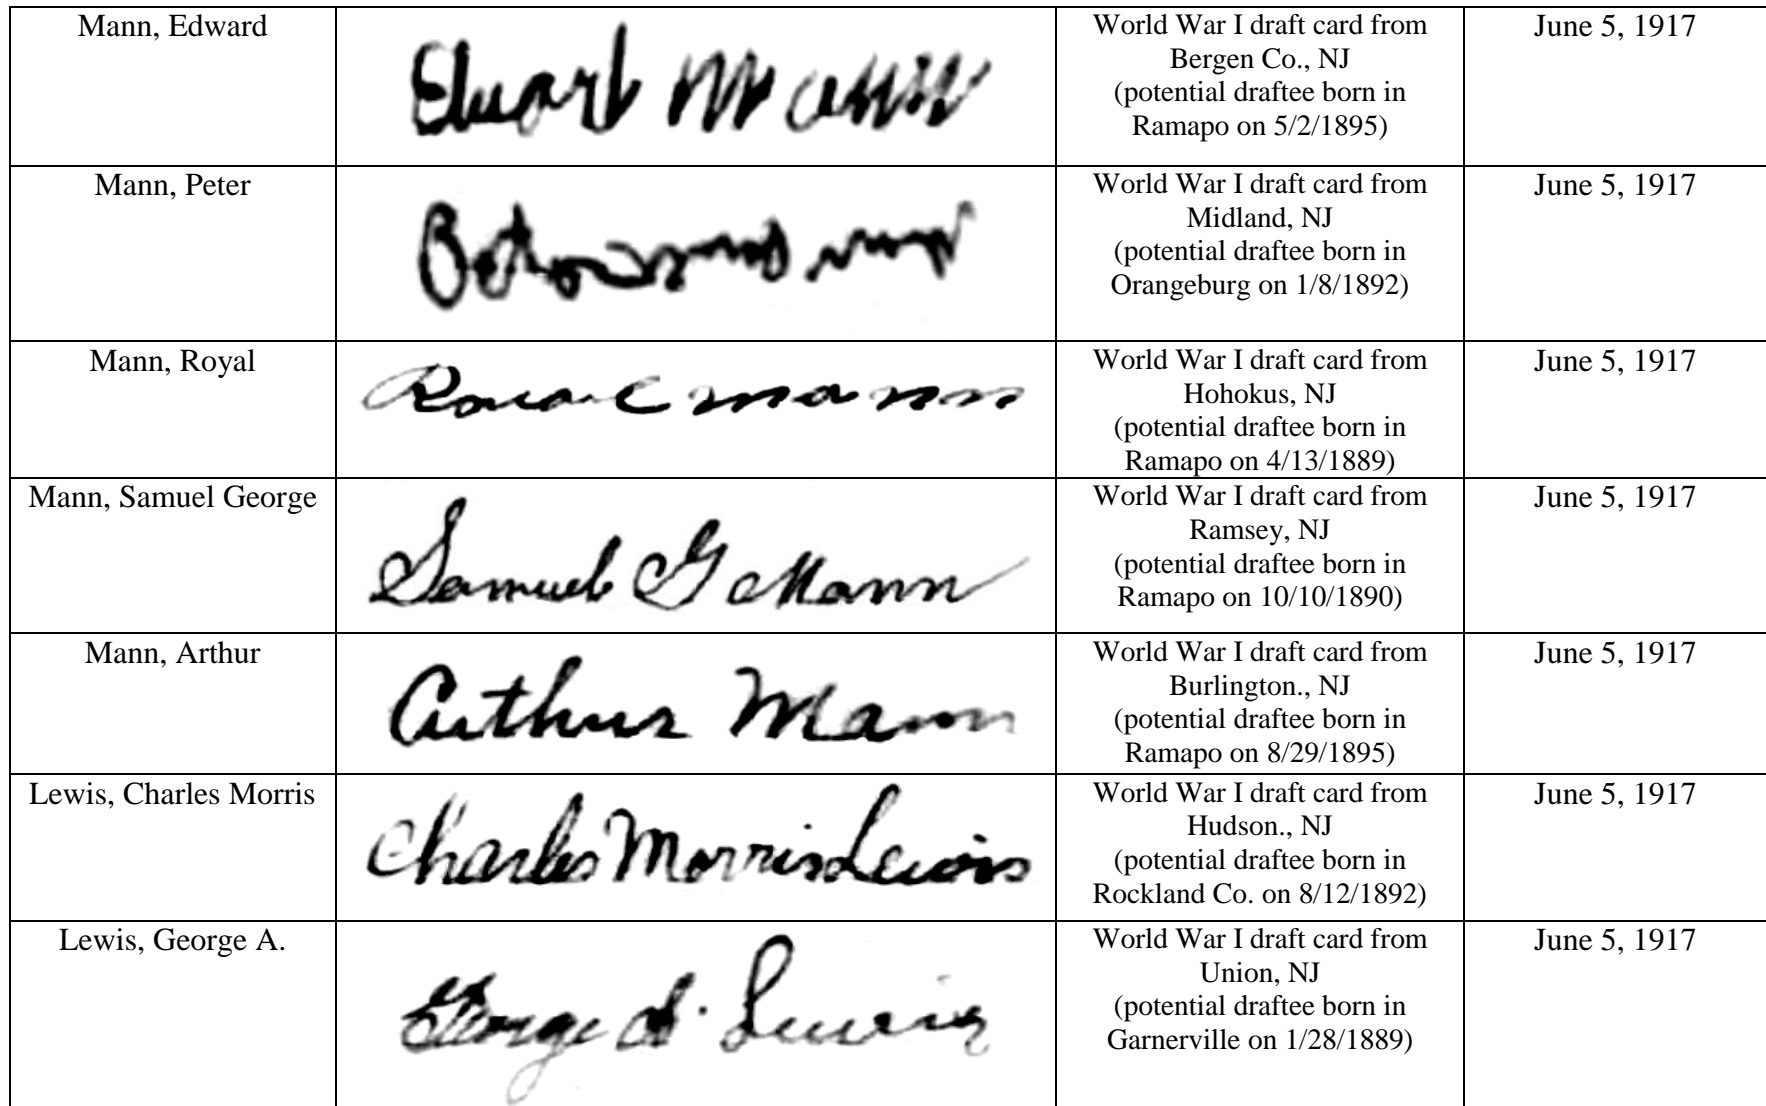 Mann, Edward
Eduart Mann
World War I draft card from
Bergen Co., NJ
(potential draftee born in
Ramapo on 5/2/1895)
June 5, 1917
Mann, Peter
World War I draft card from
Midland, NJ
(potential draftee born in
Orangeburg on 1/8/1892)
June 5, 1917
Mann, Royal
Mann
World War I draft card from
Hohokus, NJ
(potential draftee born in
Ramapo on 4/13/1889)
June 5, 1917
Mann, Samuel George
Samuel G Mann
World War I draft card from
Ramsey, NJ
(potential draftee born in
Ramapo on 10/10/1890)
June 5, 1917
Mann, Arthur
Arthur Mann
World War I draft card from
Burlington., NJ
(potential draftee born in
Ramapo on 8/29/1895)
June 5, 1917
Lewis, Charles Morris
Charles Morris Lewis
World War I draft card from
Hudson., NJ
(potential draftee born in
Rockland Co. on 8/12/1892)
June 5, 1917
Lewis, George A.
George A. Lewis
World War I draft card from
Union, NJ
(potential draftee born in
Garnerville on 1/28/1889)
June 5, 1917